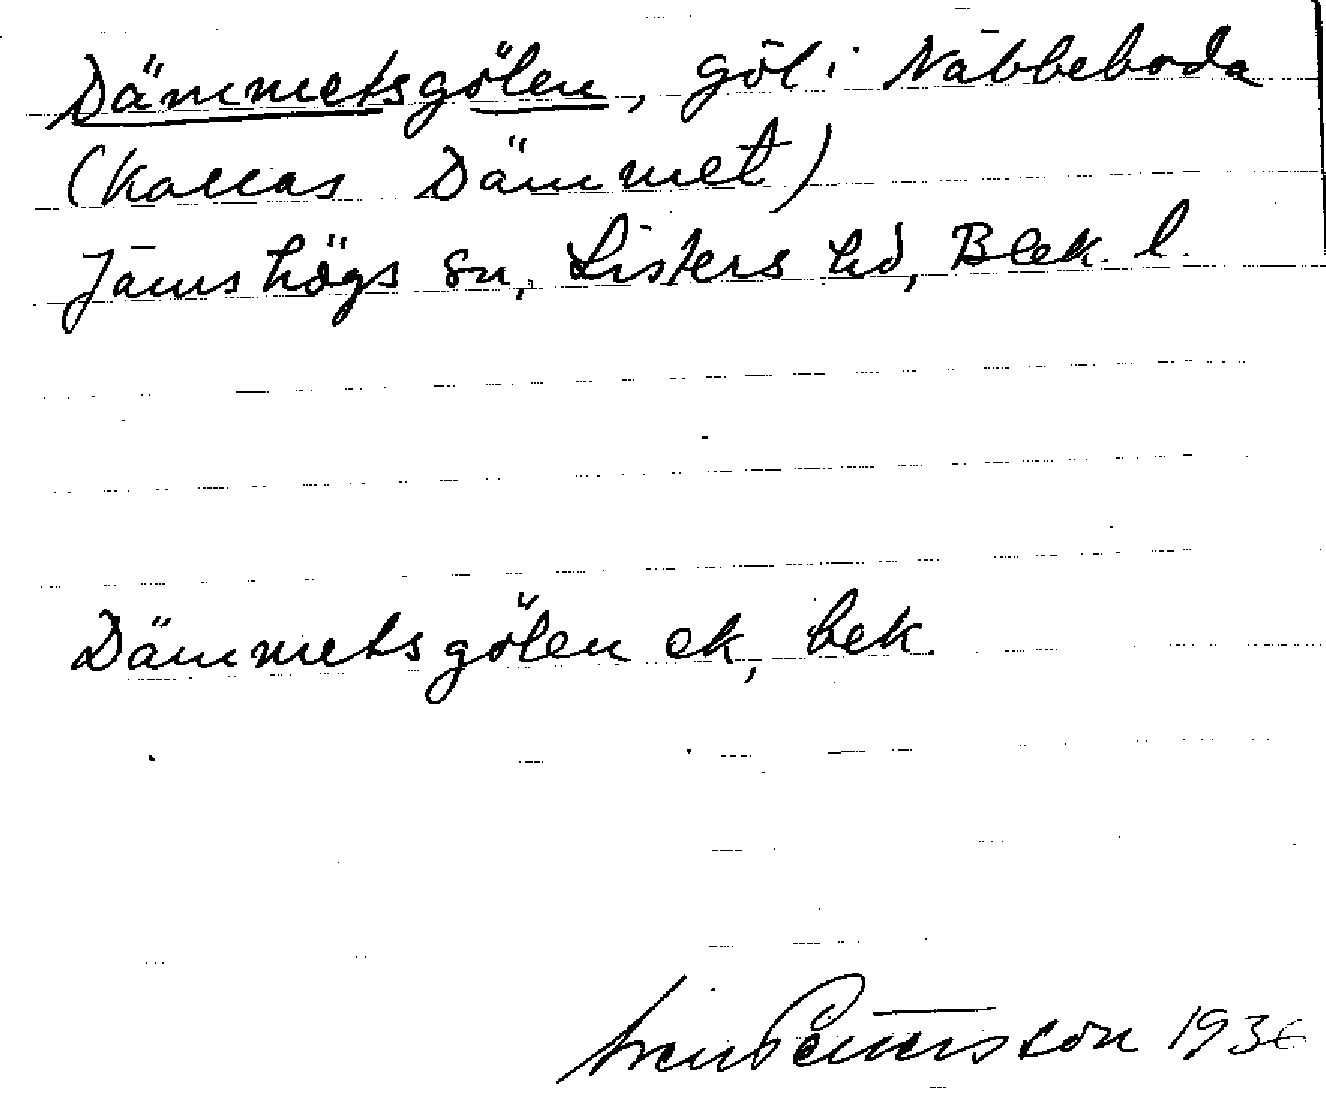 Dämmetsgölen, göl i Näbbeboda
(Kallas Dämmet)
Jämshögs sn, Listers hd, Blek. l.
Dämmetsgölen ek, bek.
Pettersson 1936